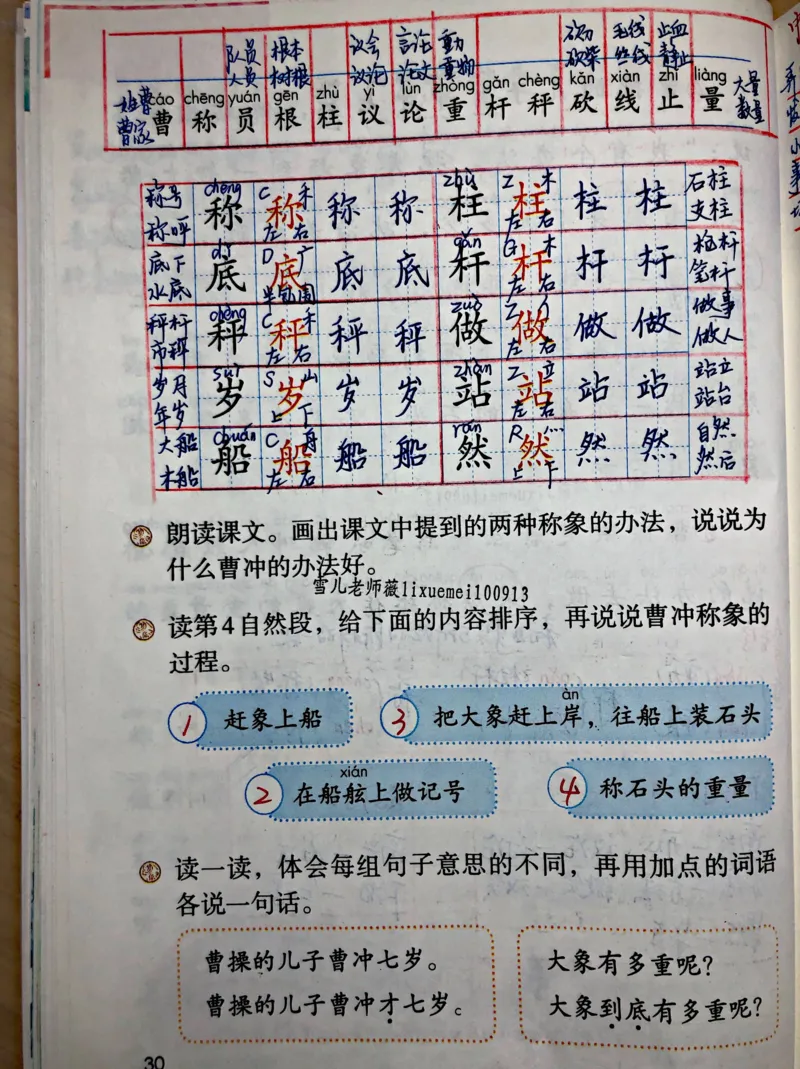 队员 根本 议会 言论 重力 砍刀 毛线 止血
人员 树根 议论 论文 重物 砍柴 丝线 静止
cáo chēng yuán gēn zhù yì lùn zhòng gǎn chèng kǎn xiàn zhǐ liàng
姓曹 曹 称 员 根 柱 议 论 重 杆 秤 砍 线 止 量 大量
曹家 数量
chēng zhù
称号 称 C 禾 称 左 右 称 称 柱 Z 木 柱 左 右 柱 柱 石柱
称呼 支柱
dǐ gǎn
底下 底 D 广 底 半包围 底 底 杆 G 木 杆 左 右 杆 杆 枪杆
水底 笔杆
chèng zuò
秤杆 秤 C 禾 秤 左 右 秤 秤 做 Z 亻 做 左 右 做 做 做事
市秤 做人
suì zhàn
岁月 岁 S 山 岁 上 下 岁 岁 站 Z 立 站 左 右 站 站 站立
年岁 站台
chuán rán
大船 船 C 舟 船 左 右 船 船 然 R 灬 然 上 下 然 然 自然
木船 然后
朗读课文。画出课文中提到的两种称象的办法，说说为
什么曹冲的办法好。
雪儿老师薇lixuemei100913
读第4自然段，给下面的内容排序，再说说曹冲称象的
过程。
àn
1 赶象上船 3 把大象赶上岸，往船上装石头
xián
2 在船舷上做记号 4 称石头的重量
读一读，体会每组句子意思的不同，再用加点的词语
各说一句话。
曹操的儿子曹冲七岁。
曹操的儿子曹冲才七岁。
大象有多重呢？
大象到底有多重呢？
30